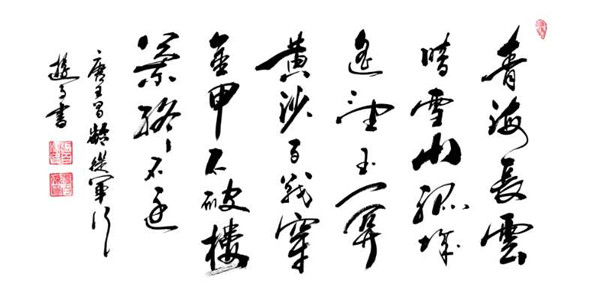 青海長雲
暗雪山孤城
遙望玉門關
黄沙百戰穿
金甲不破樓
蘭終不還
唐王昌齡從軍行
書